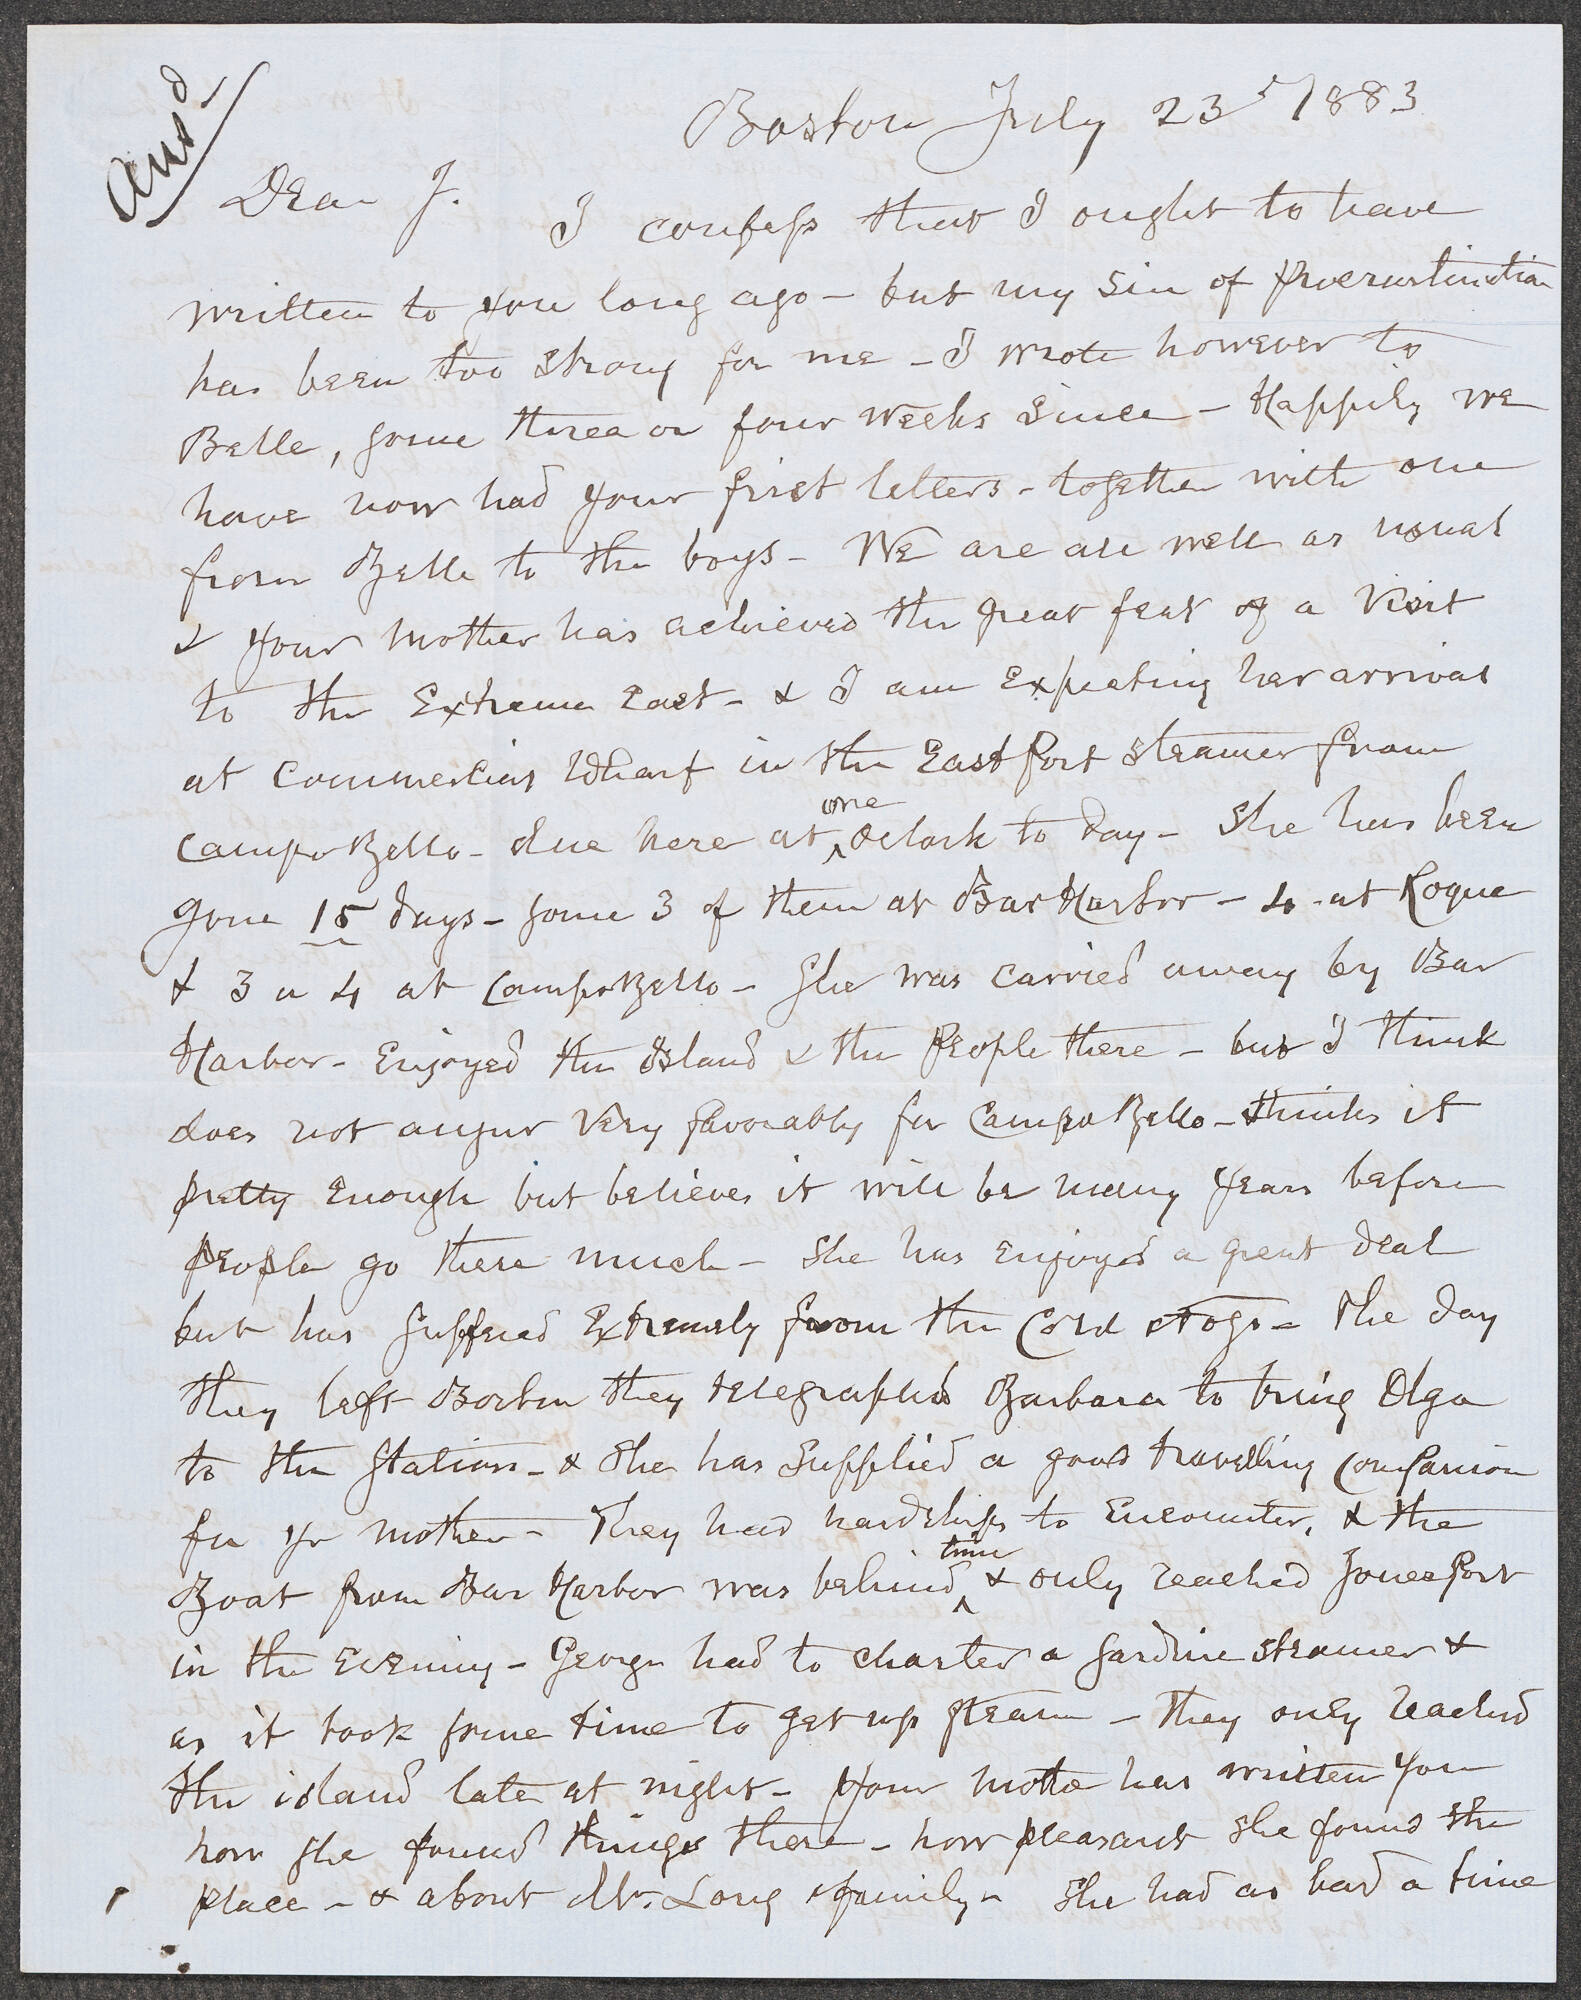 Ansd
Boston July 23d 1883
Dear J. I confess that I ought to have
written to you long ago - but my sin of procrastination
has been too strong for me - I wrote however to
Belle, some three or four weeks since - Happily we
have now had your first letters - together with one
from Belle to the boys - We are all well as usual
& your mother has achieved the great feat of a visit
to the Extreme East - & I am expecting her arrival
at Commercial Wharf in the East Port steamer from
Campo Bello - due here at one oclock to day - She has been
gone 15 days - some 3 of them at Bar Harbor - 4 - at Roque
& 3 or 4 at Campo Bello - She was carried away by Bar
Harbor - Enjoyed the Island & the People there - but I think
does not augur very favorably for Campo Bello - thinks it
pretty enough but believes it will be many years before
people go there much - She has enjoyed a great deal
but has suffered Extremely from the Cold & Fogs - The day
they left Boston they telegraphed Barbara to bring Olga
to the Station - & she has supplied a good travelling companion
for yr mother - They had hardships to Encounter, & the
Boat from Bar Harbor was behind time & only reached Jonesport
in the Evening - George had to charter a sardine steamer &
as it took some time to get up steam - they only reached
the island late at night - Your mother has written you
how she found things there - how pleasant she found the
place - & about Mr. Long & family - She had as bad a time